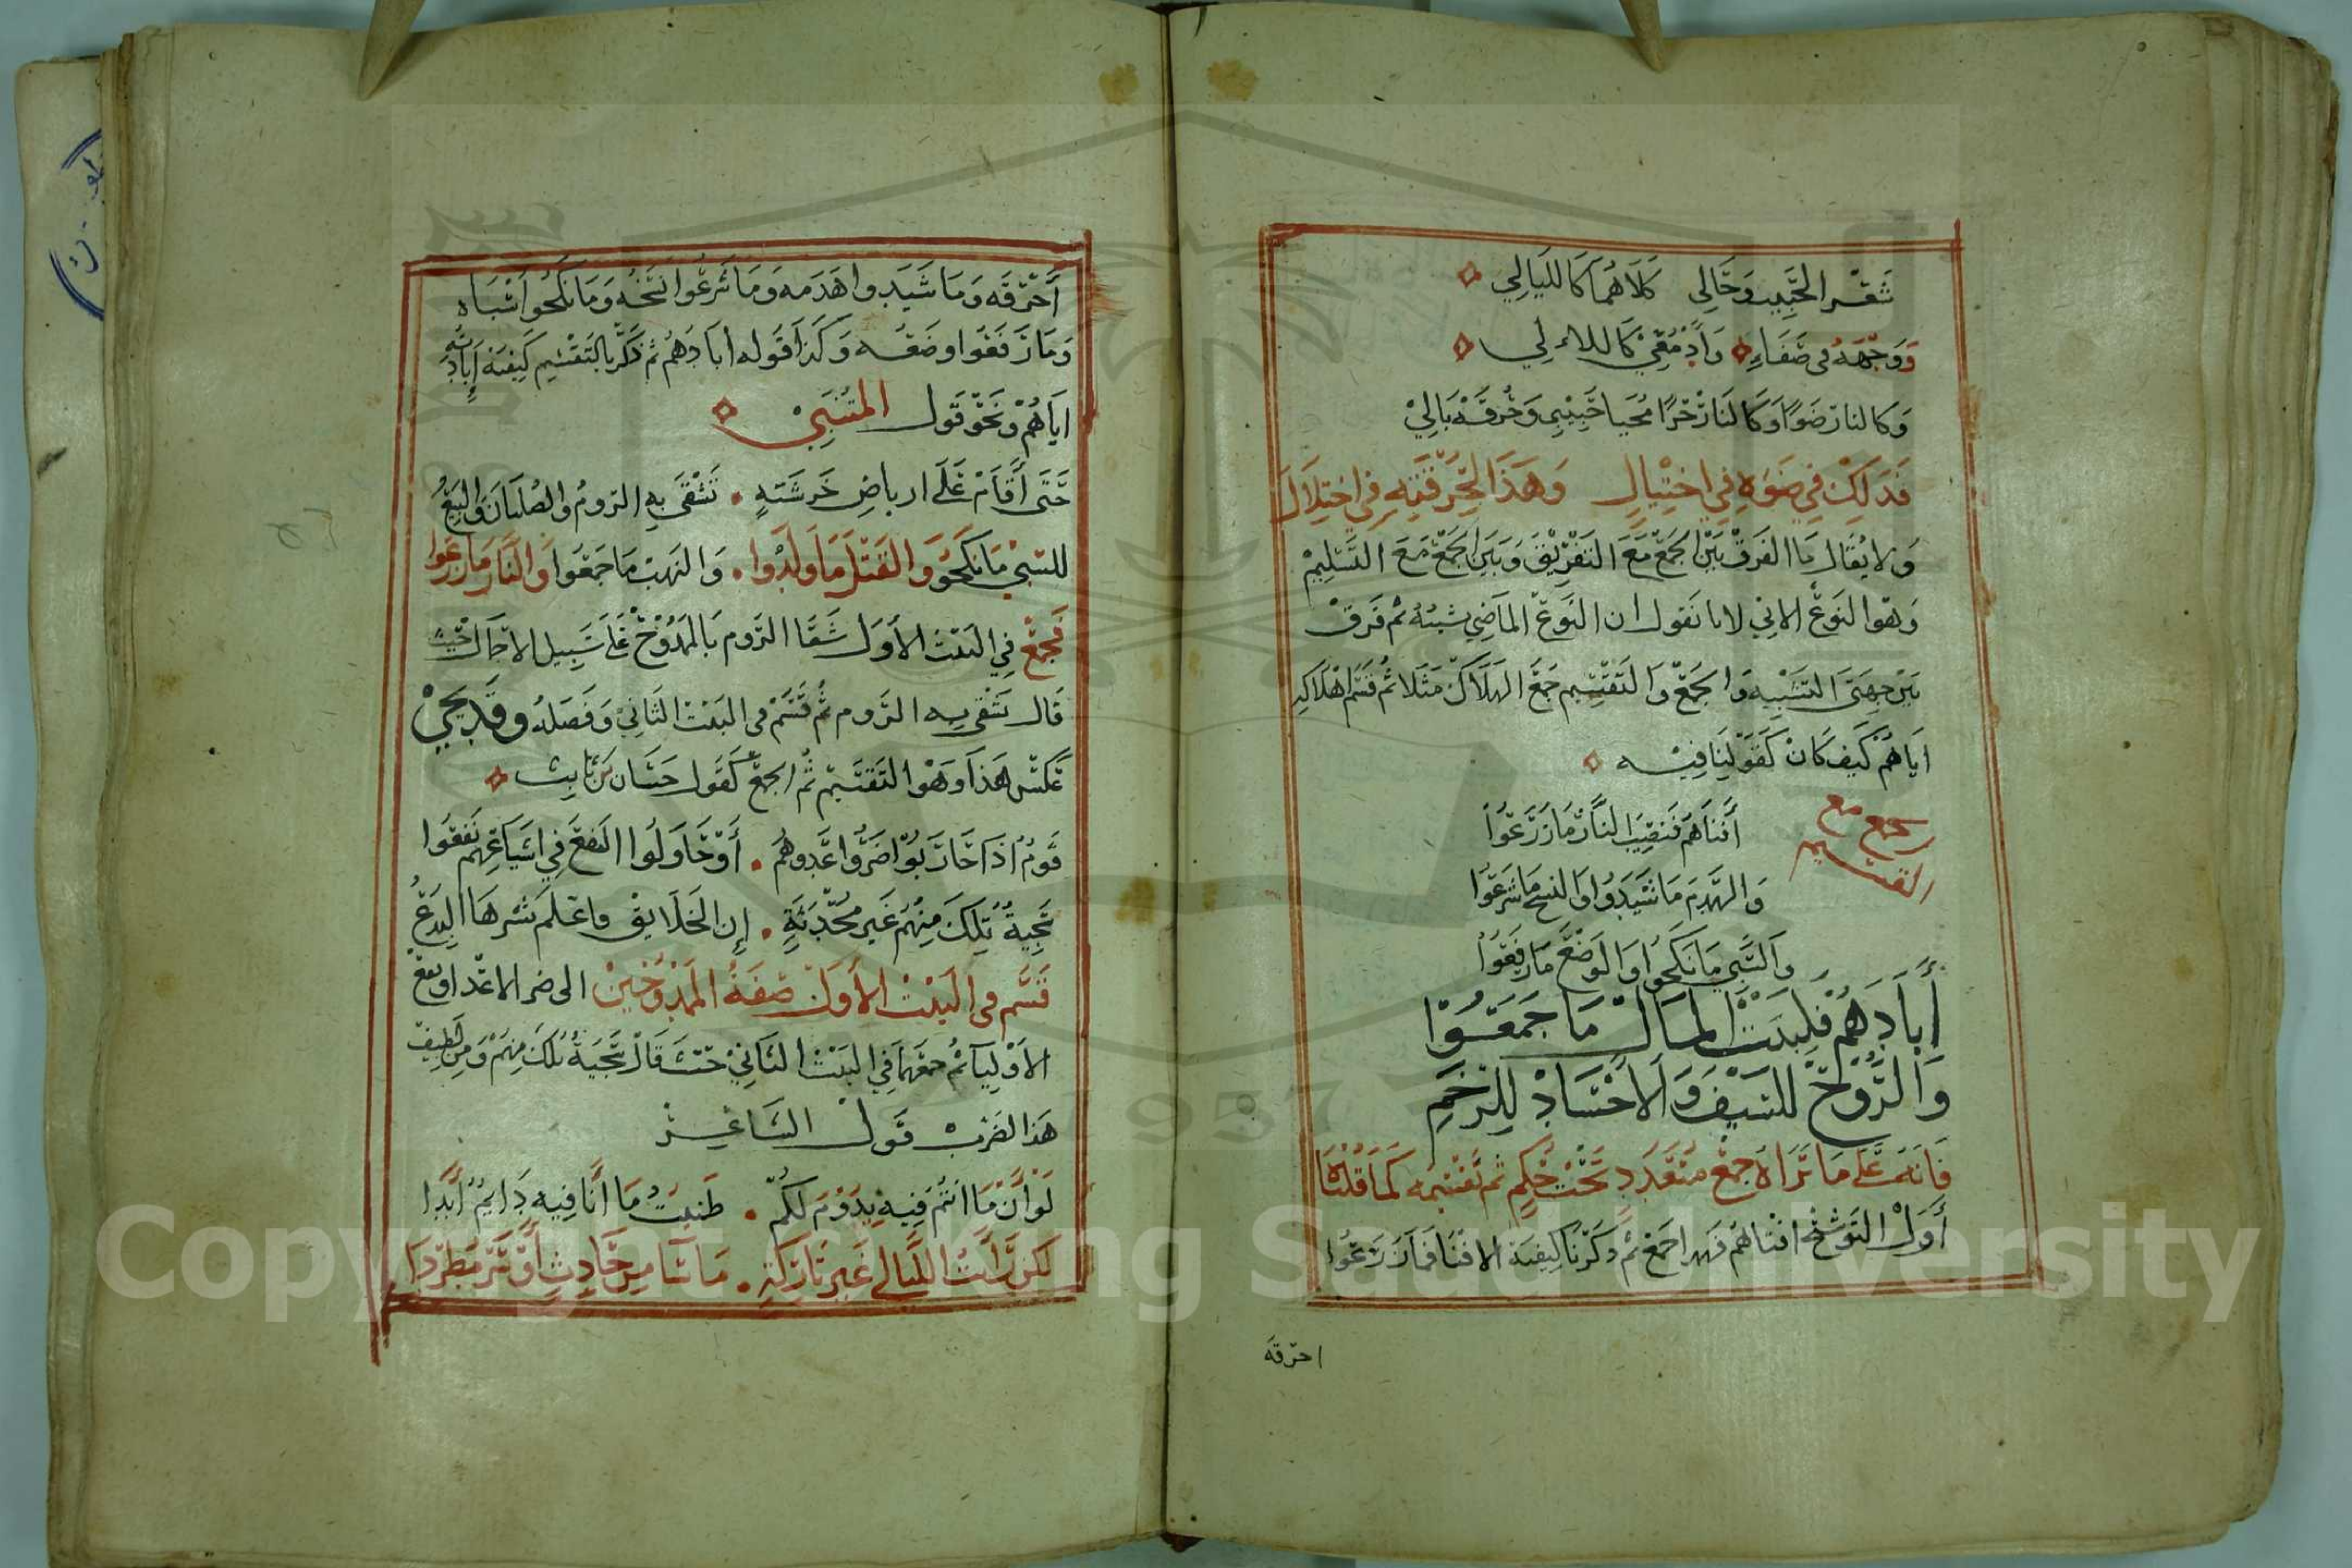 شعر الحبيب وحالي كلاهما كالليالي
ووجهه في صفاء وادمعي كاللالي
وكالنار ضوًا وكالنار حرًا محيا حبيبي وحرقة بالي
فذلك في ضوءه في اختيال وهذا لحرقته في اختلال
ولا يقال ما الفرق بين الجمع مع التفريق وبين الجمع مع التسليم
وهو النوع الاتي لانا نقول ان النوع الماضي شبه ثم فرق
بين جهتي التشبيه والجمع والتقسيم جمع الهلاك مثلا ثم قسم اهلاكه
اياهم كيف كان كقولنا فيه
الجمع مع
التقسيم
أفناهم فنصيب النار ما زرعوا
والهدم ما شيدوا والنسخ ما شرعوا
والسبي ما نكحوا والوضع ما رفعوا
أبادهم فلبيت المال ما جمعوا
والروح للسيف والاجساد للرخم
فانه على ما تراه جمع متعدد تحت حكم ثم تقسيمه كما قلنا
أول التوشيح افناهم فهذا جمع ثم ذكرنا كيفية الافنا فما زرعوا
احرقه
أحرقه وما شيدوا هدمه وما شرعوا نسخه وما نكحوا سباه
وما رفعوا وضعه وكذا قوله ابادهم ثم ذكر بالتقسيم كيفية إبادته
اياهم ونحو قول المتنبي
حتى أقام على ارباض خرشنة تشقى به الروم والصلبان والبيع
للسبي ما نكحوا والقتل ما ولدوا والنهب ما جمعوا والنار ما زرعوا
فجمع في البيت الأول شقا الروم بالممدوح على سبيل الاجمال حيث
قال تشقى به الروم ثم قسم في البيت الثاني وفصله وقد يجي
عكس هذا وهو التقسيم ثم الجمع كقول حسان بن ثابت
قوم اذا حاربوا ضروا عدوهم أو حاولوا النفع في اشياعهم نفعوا
سجية تلك منهم غير محدثة إن الخلايق فاعلم شرها البدع
قسم في البيت الأول صفة الممدوحين الى ضر الاعدا ونفع
الاوليا ثم جمعها في البيت الثاني حيث قال سجية تلك منهم ومن لطيف
هذا الضرب قول الشاعر
لو أن ما انتم فيه يدوم لكم ظننت ما أنا فيه دايم أبدا
لكن رأيت الليالي غير تاركة ما سا من حادث أو سر مطردا